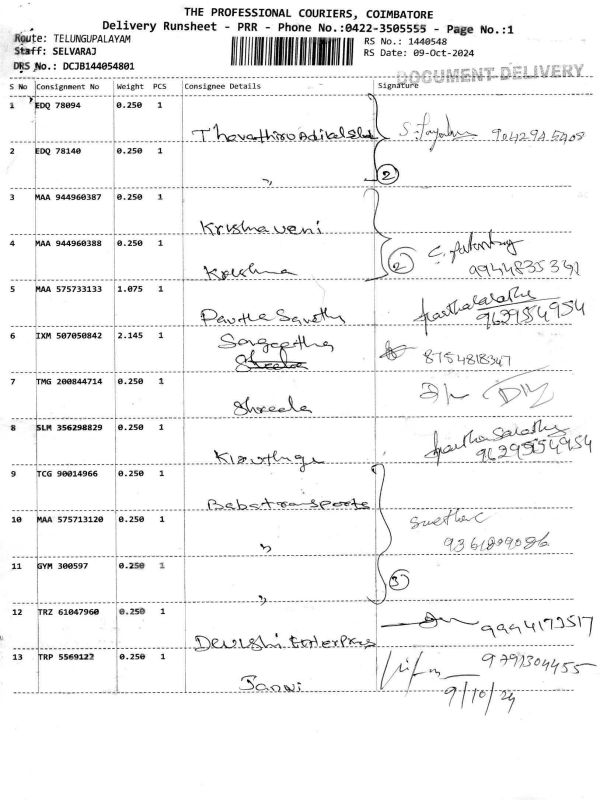 THE PROFESSIONAL COURIERS, COIMBATORE
Delivery Runsheet - PRR - Phone No.:0422-3505555 - Page No.:1
Route: TELUNGUPALAYAM
Staff: SELVARAJ
DRS No.: DCJB144054801
RS No.: 1440548
RS Date: 09-Oct-2024
DOCUMENT DELIVERY
S No Consignment No Weight PCS Consignee Details Signature
1 EDQ 78094 0.250 1
2 EDQ 78140 0.250 1 " 2
3 MAA 944960387 0.250 1 Krishnaveni
4 MAA 944960388 0.250 1 Krishna 2
9944835341
5 MAA 575733133 1.075 1
9629554954
6 IXM 507050842 2.145 1 Sangeetha
Sheela
8754818347
7 TMG 200844714 0.250 1 Shreela
8 SLM 356298829 0.250 1
9629554954
9 TCG 90014966 0.250 1 Babs transports
10 MAA 575713120 0.250 1 "
9361899086
11 GYM 300597 0.250 1 " 3
12 TRZ 61047960 0.250 1 9994173517
13 TRP 5569122 0.250 1 9791304455
9/10/24